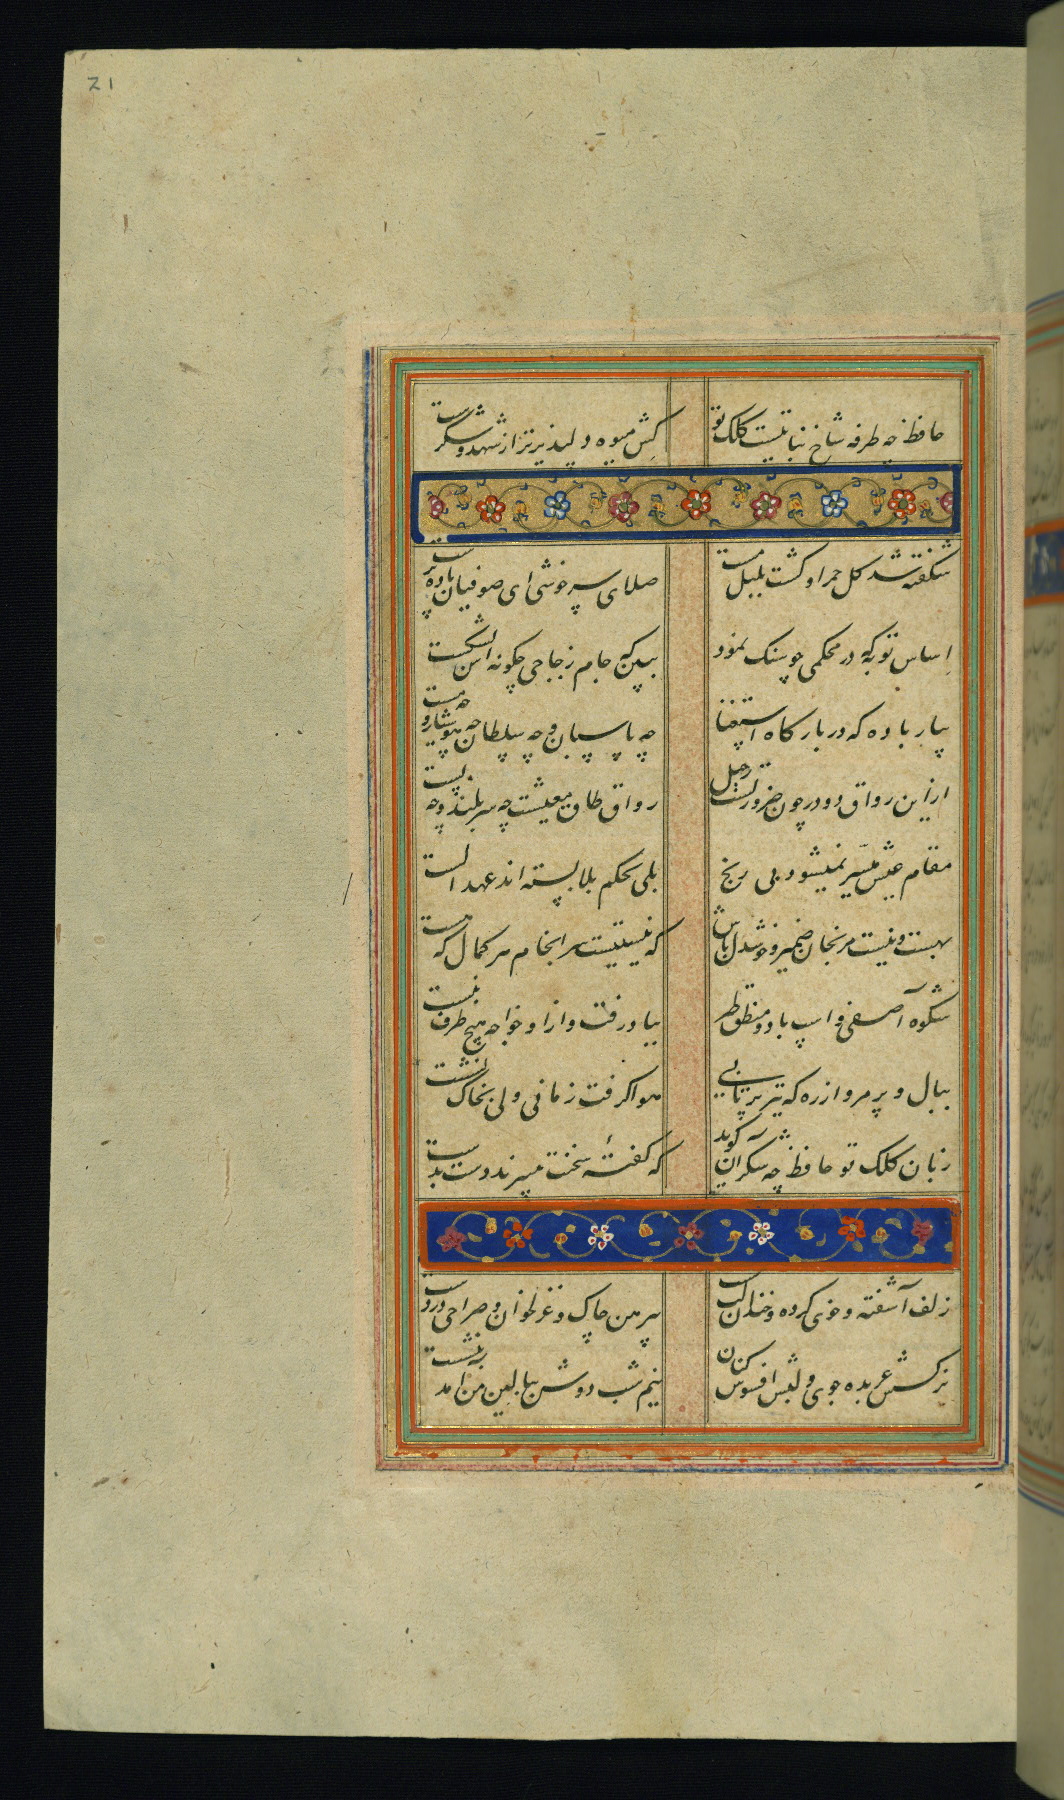 21
حافظ چه طرفه شاخ نباتیست کلک تو کش میوه دلپذیرتر از شهد و شکرست
شکفته شد کل حمرا و کشت بلبل مست صلای سرخوشی ای صوفیان باده پرست
اساس توبه که در محکمی چو سنک نمود ببین که جام زجاجی چکونه اش بشکست
بیار باده که در بارکاه استغنا چه پاسبان و چه سلطان چه هوشیار و چه مست
ازین رواق دو در چون ضرورتست رحیل رواق طاق معیشت چه سربلند و چه پست
مقام عیش میسر نمیشود بی رنج بلی بحکم بلا بسته اند عهد الست
بهست و نیست مرنجان ضمیر و خوشدل باش که نیستیست سرانجام هر کمال که هست
شکوه آصفی و اسپ باد و منطق طیر بباد رفت و ازو خواجه هیچ طرف نبست
ببال و پر مرو از ره که تیر پرتابی هوا کرفت زمانی ولی بخاک نشست
زبان کلک تو حافظ چه شکر آن کوید که کفتهٔ سخنت میبرند دست بدست
زلف آشفته و خوی کرده و خندان لب پیرهن چاک و غزلخوان و صراحی در دست
نرکسش عربده جوی و لبش افسوس کنان نیم شب دوش ببالین من آمد بنشست